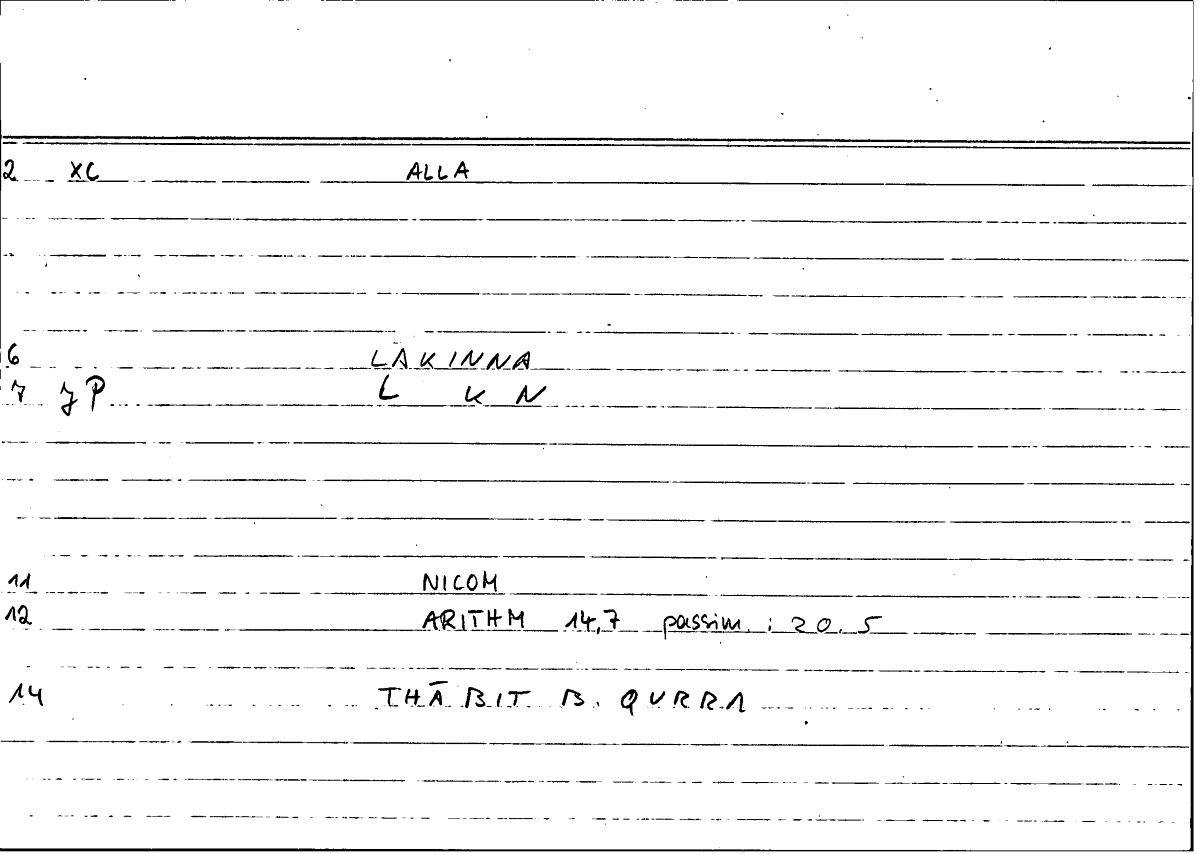 2 XC ALLA
6 LĀKINNA
7 JP L K N
11 NICOM
12 ARITHM 14,7 passim ; 20.5
14 THĀBIT B. QURRA